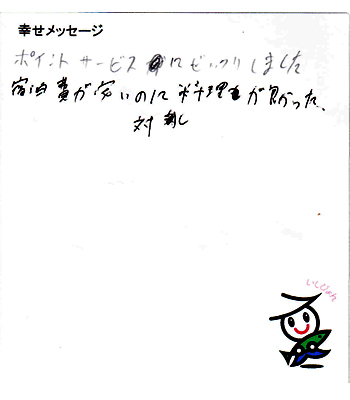 幸せメッセージ
ポイントサービスにびっくりしました
宿泊費が安いのに料理が良かった、